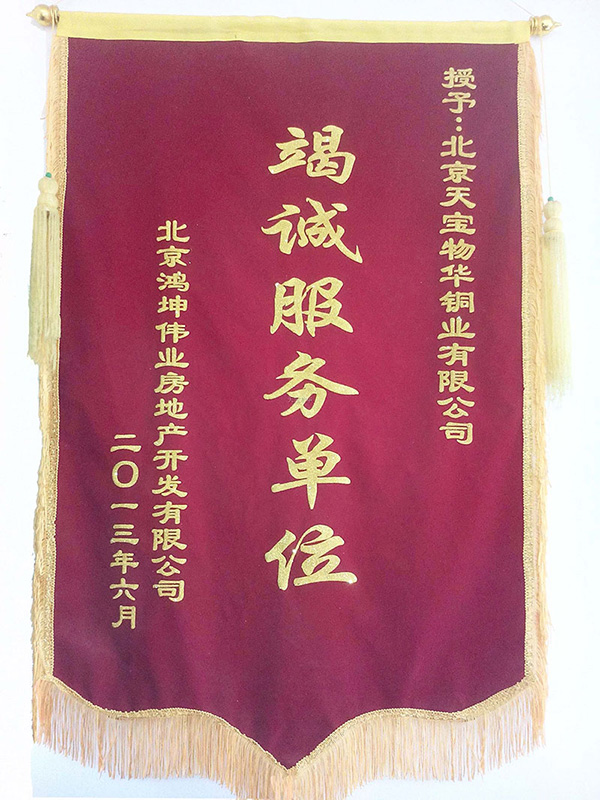 授予:北京天宝物华铜业有限公司
竭诚服务单位
北京鸿坤伟业房地产开发有限公司
二〇一三年六月